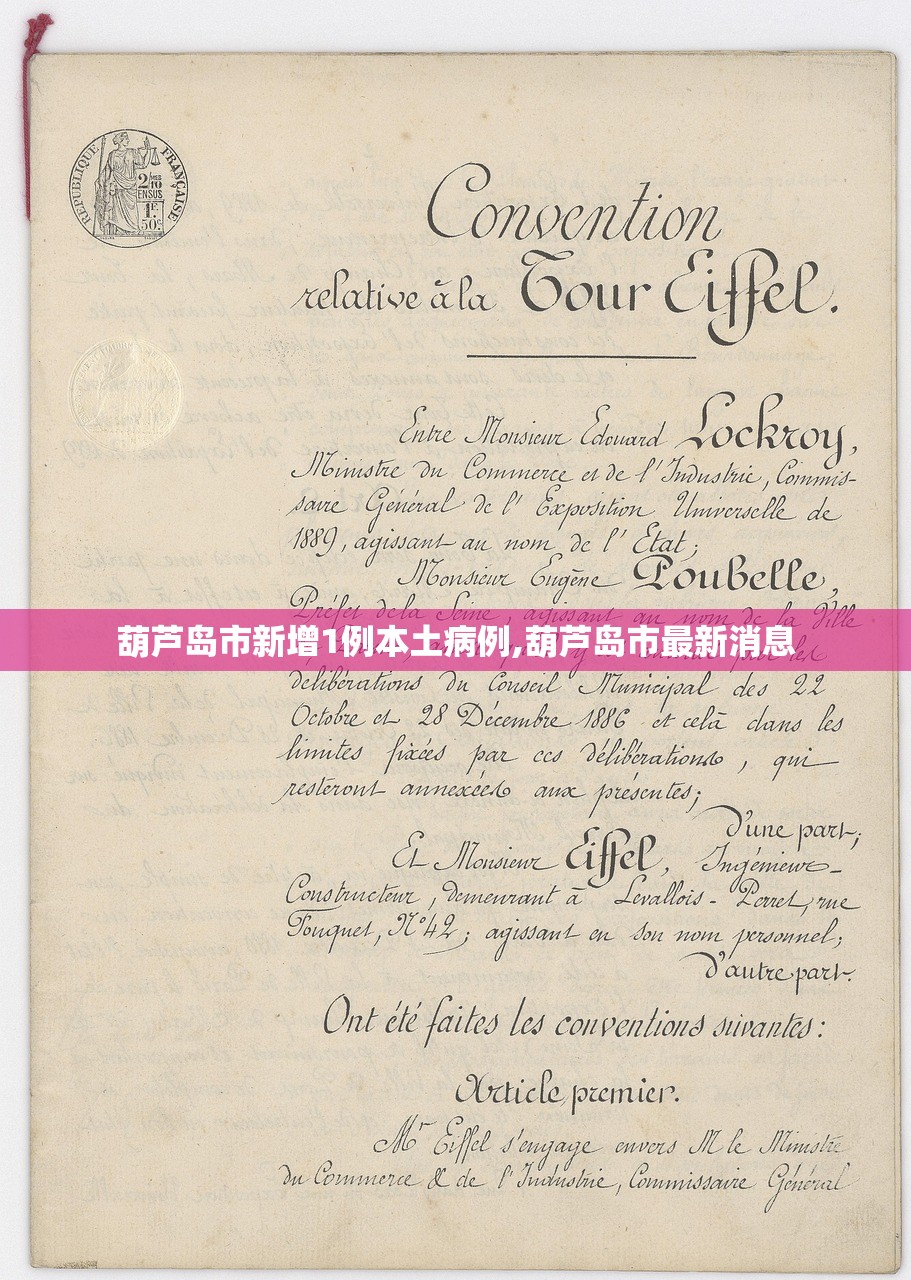 RÉPUBLIQUE FRANÇAISE
2/10
EN SUS
1F.
50c
Convention
relative à la Tour Eiffel.
Entre Monsieur Edouard Lockroy,
Ministre du Commerce et de l'Industrie, Commis-
saire Général de l'Exposition Universelle de
1889, agissant au nom de l'Etat;
Monsieur Eugène Poubelle,
Préfet de la Seine, agissant au nom de la Ville
葫芦岛市新增1例本土病例,葫芦岛市最新消息
par les
délibérations du Conseil Municipal des 22
Octobre et 28 Décembre 1886 et celà dans les
limites fixées par ces délibérations, qui
resteront annexées aux présentes;
d'une part;
Et Monsieur Eiffel, Ingénieur-
Constructeur, demeurant à Levallois-Perret, rue
Fouquet, N°42; agissant en son nom personnel;
d'autre part.
Ont été faites les conventions suivantes:
Article premier.
Mr Eiffel s'engage envers M le Ministre
du Commerce & de l'Industrie, Commissaire Général